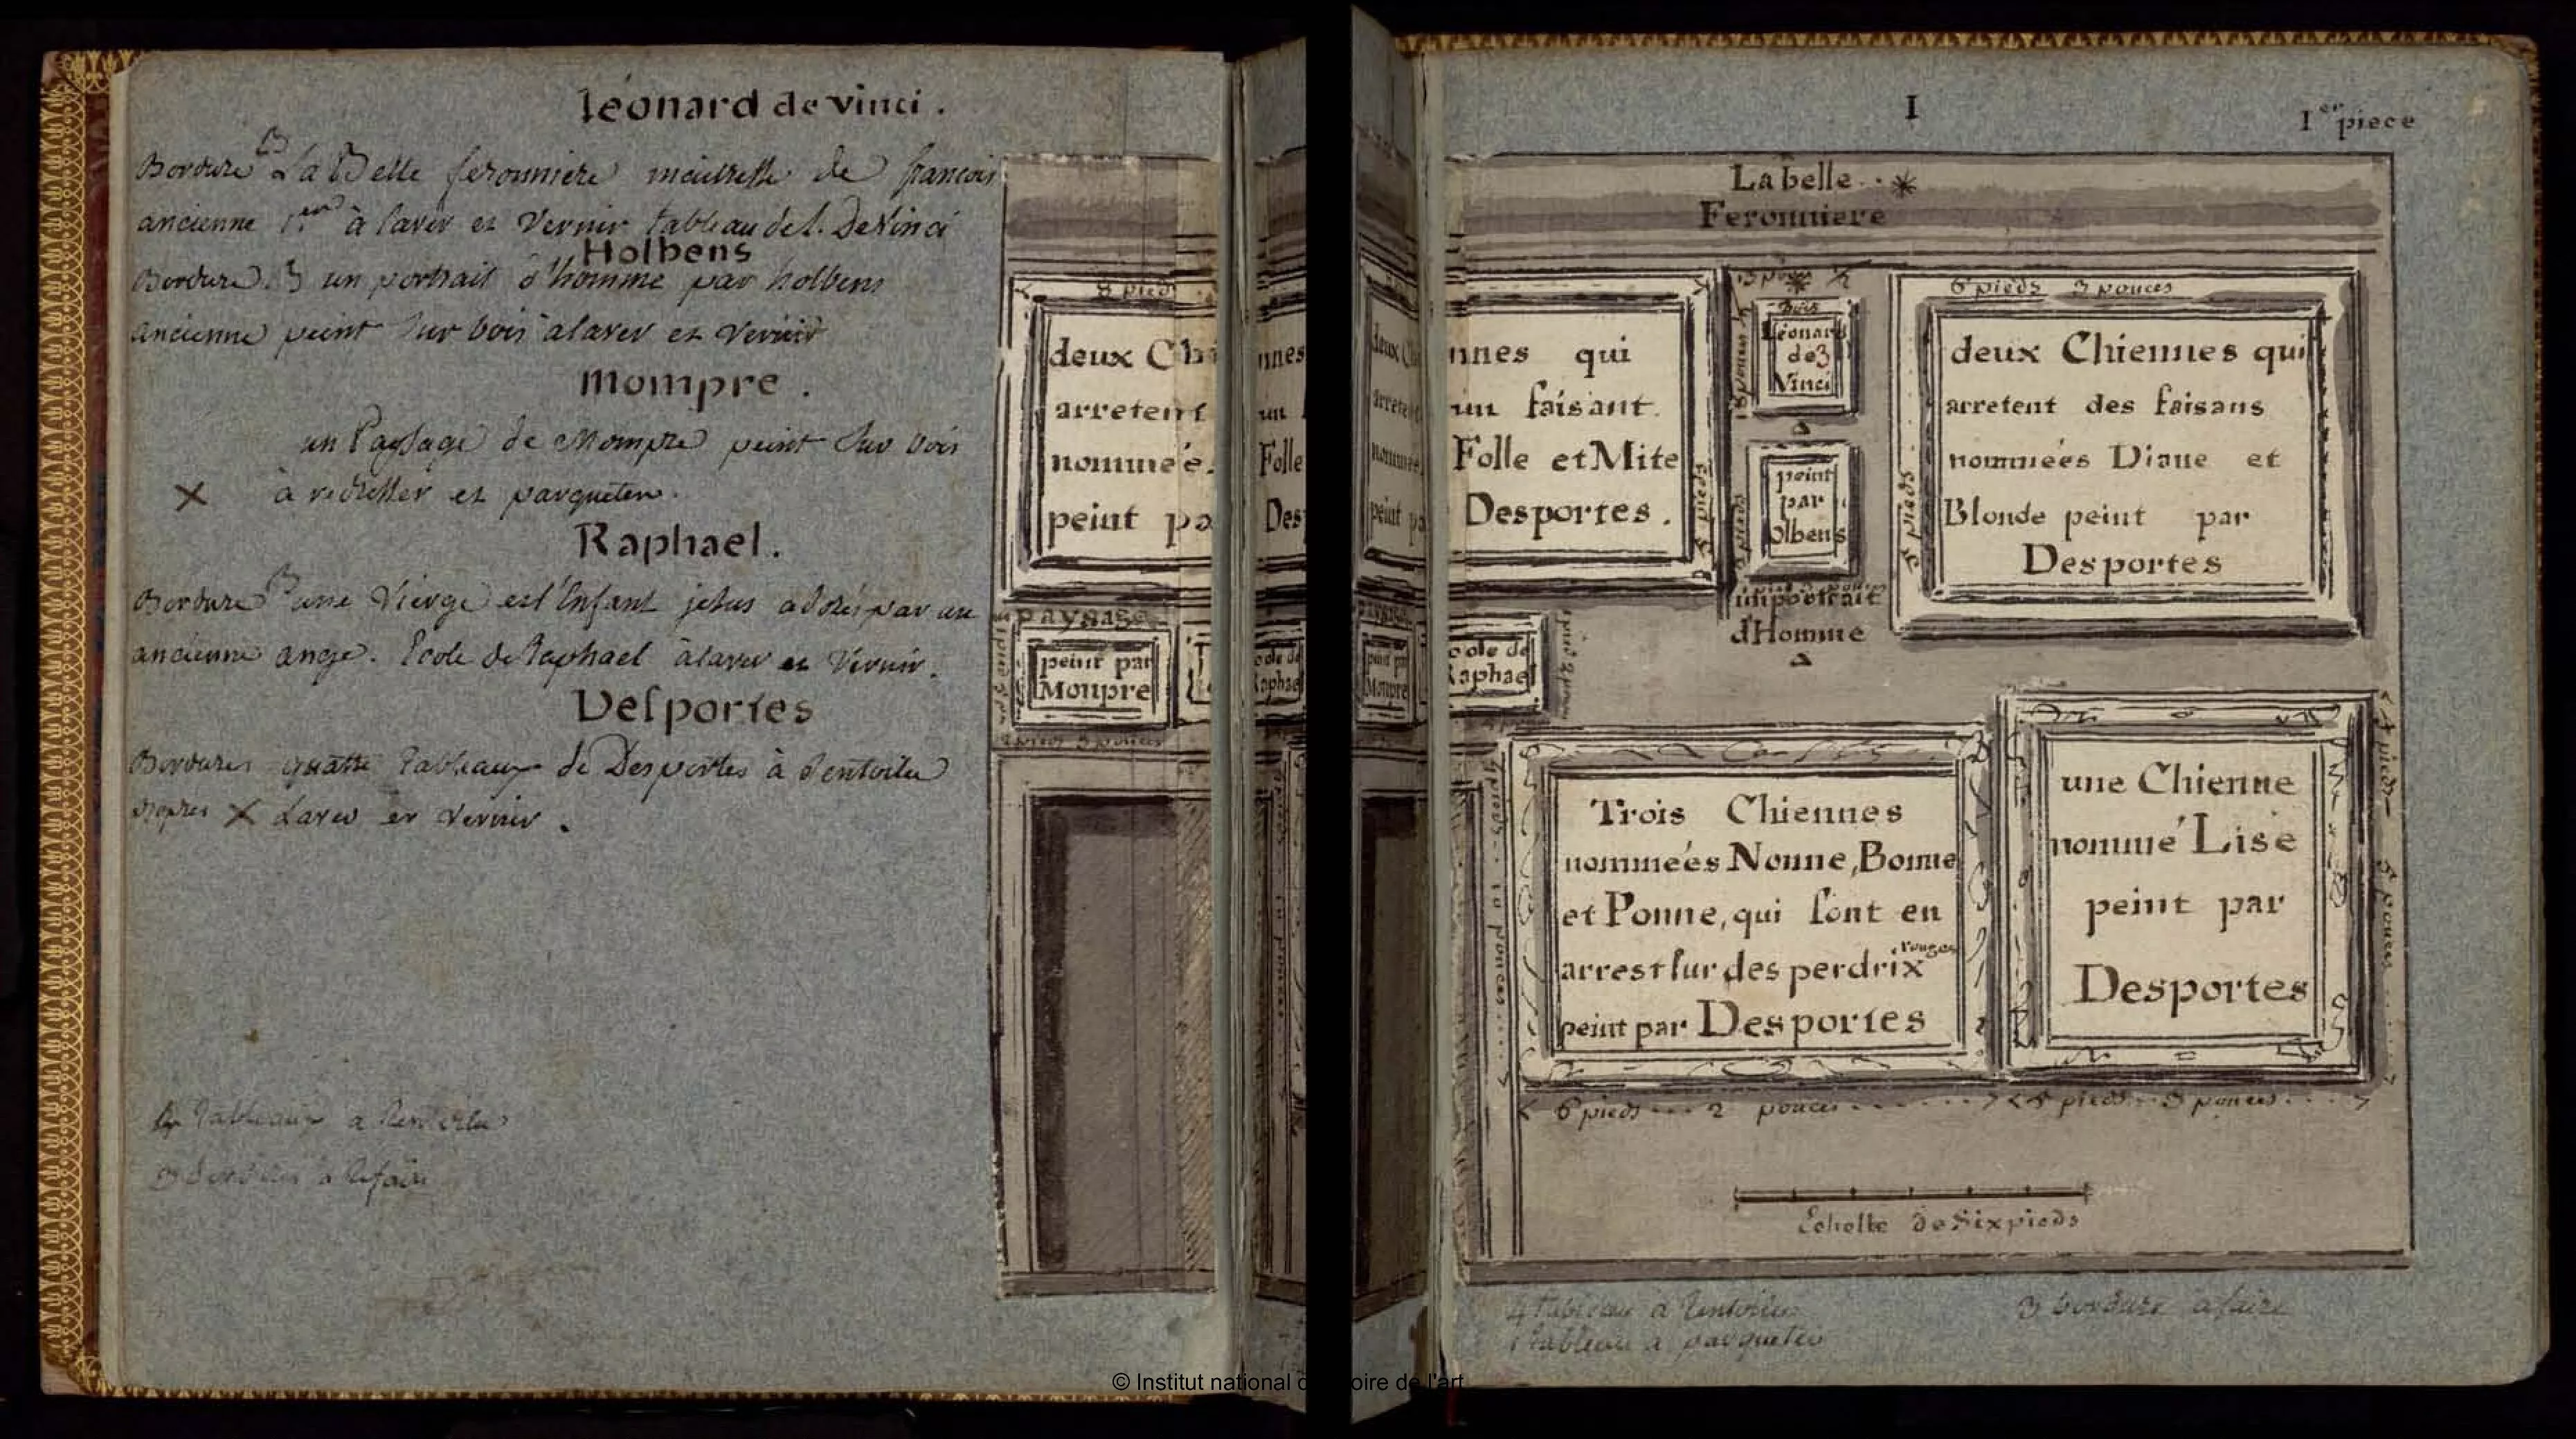 léonard de vinci.
Bordure La Belle feronniere maitresse de francois
ancienne 1.er à laver et Vernir tableau de l. De Vinci
Holbens
Bordure 3 un portrait d'homme par holbens
ancienne peint sur bois a laver et Vernir
Mompre.
un Paysage de Mompre peint sur bois
X à redresser et parqueter.
Raphael.
Bordure 3 une Vierge est l'Enfant jesus adorés par un
ancienne ange. Ecole de Raphael à laver et Vernir.
Desportes
Bordures quatre Tableaux de Desportes à Rentoiler
X Laver et Vernir.
4 Tableaux a Rentoiler
3 bordures a Refaire
8 pieds
deux Ch
arretent
nommeé
peint pa
paysage
peint par
Monpre
1 pied 3 pouces
nnes
un
Folle
Des
ole de
Raphael
deux Ch
arretent
nommeé
peint pa
paysage
peint par
Monpre
I
1er piece
La belle
Feronniere
nnes qui
un faisant
Folle et Mite
Desportes.
5 pieds
ole de
Raphael
13 pouces 1/2
18 pouces
Bois
Léonard
de 3
Vinci
peint
par
olbens
un portrait
d'Homme
6 pieds 3 pouces
5 pieds
deux Chiennes qui
arretent des faisans
nommeés Diane et
Blonde peint par
Desportes
Trois Chiennes
nommeés Nonne, Bonne
et Ponne, qui sont en
arrest sur des perdrix rouges
peint par Desportes
6 pieds 2 pouces
une Chienne
nommé Lise
peint par
Desportes
4 pieds 5 pouces
5 pieds 3 pouces
Echelle de Six pieds
4 tableaux a Rentoiler
1 tableau a parqueter
3 bordure a faire
© Institut national d oire de l'art